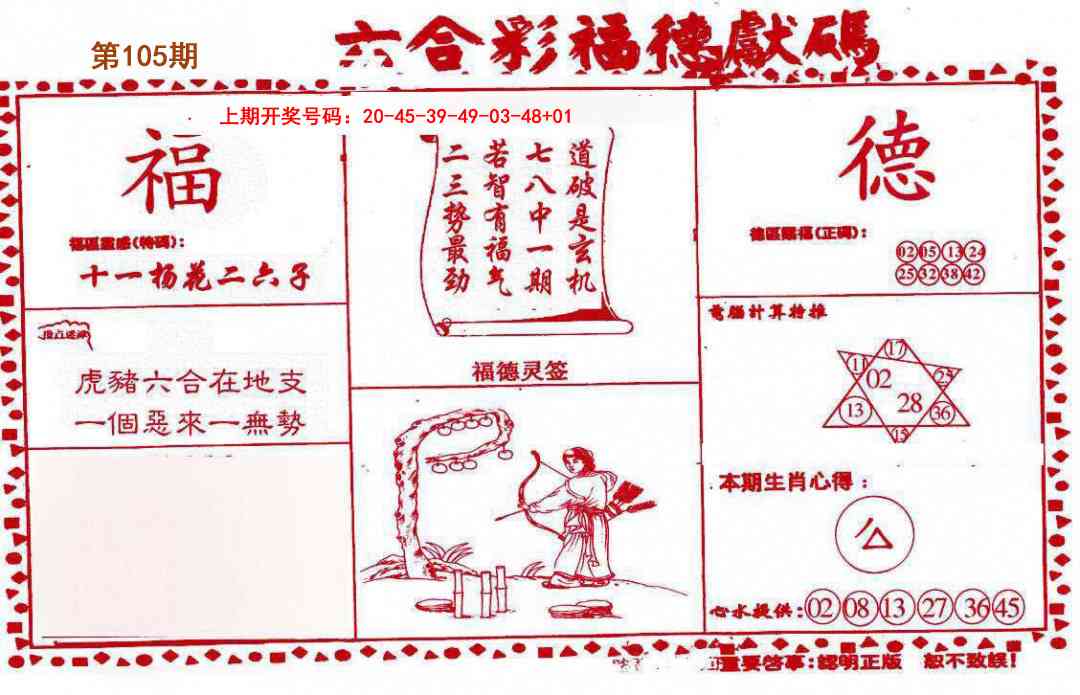 六合彩福德獻碼
第105期
上期开奖号码：20-45-39-49-03-48+01
福
福區靈感(特碼):
十一杨花二六子
虎豬六合在地支
一個惡來一無勢
道破是玄机
七八中一期
若智有福气
二三势最劲
福德灵签
德
德區賜福(正碼):
02 05 13 24
25 32 38 42
電腦計算特推
17
11 02 25
13 28 36
15
本期生肖心得：
心水提供:02 08 13 27 36 45
重要啓事:認明正版 恕不致誤!